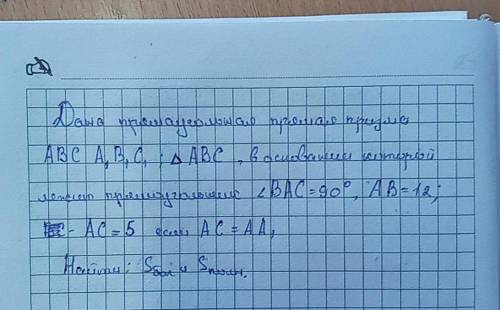 Дана прямоугольная прямая призма
ABC A₁B₁C₁; △ABC, в основании которой
лежит прямоугольник ∠BAC=90°, AB=12;
- AC=5 если AC=AA₁
Найти: Sбок и Sполн.